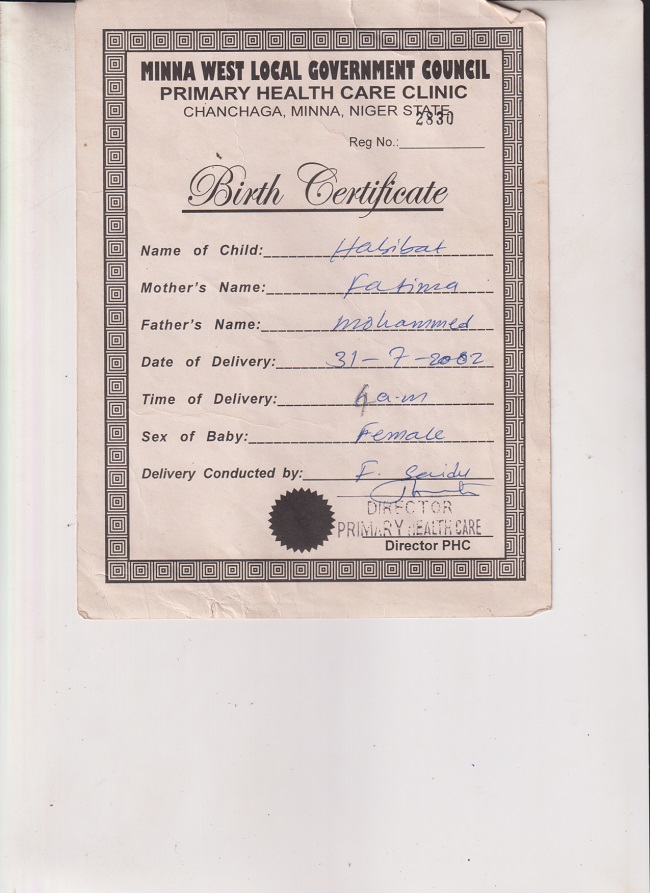 MINNA WEST LOCAL GOVERNMENT COUNCIL
PRIMARY HEALTH CARE CLINIC
CHANCHAGA, MINNA, NIGER STATE
2830
Reg No.:
Birth Certificate
Name of Child: Habibat
Mother's Name: Fatima
Father's Name: Mohammed
Date of Delivery: 31-7-2002
Time of Delivery: a.m
Sex of Baby: Female
Delivery Conducted by: F. Saidu
DIRECTOR
PRIMARY HEALTH CARE
Director PHC